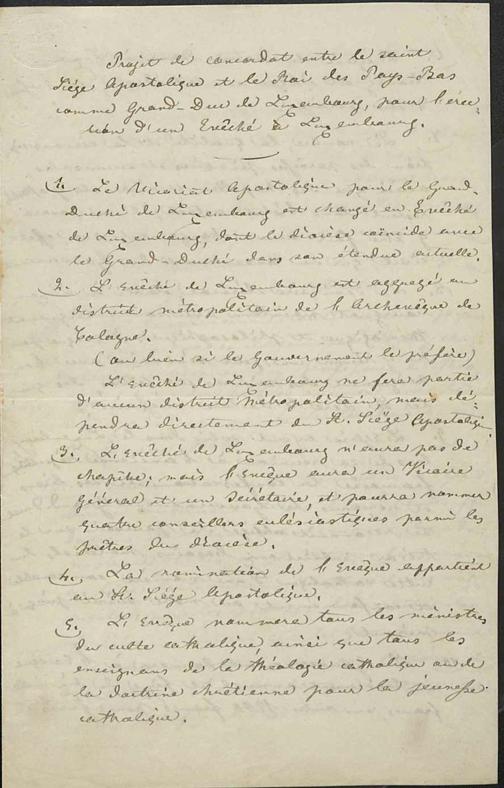 Projet de concordat entre le saint
Siége Apostolique et le Roi des Pays-Bas
comme Grand-Duc de Luxembourg, pour l'érec-
tion d'un Evêché à Luxembourg.
1. Le Vicariat Apostolique pour le Grand-
Duché de Luxembourg est changé en Evêché
de Luxembourg, dont le diocèse coïncide avec
le Grand-Duché dans son étendue actuelle.
2. L'Evêché de Luxembourg est aggregé au
district métropolitain de l'Archevêque de
Cologne.
(ou bien si le Gouvernement le préfère)
L'Evêché de Luxembourg ne fera partie
d'aucun district Métropolitain, mais dé-
pendra directement du St. Siége Apostoliq.
3. L'Evêché de Luxembourg n'aura pas de
chapitre; mais l'Evêque aura un Vicaire
Général et un Secrétaire, et pourra nommer
quatre conseillers ecclésiastiques parmi les
prêtres du diocèse.
4. La nomination de l'Evêque appartient
au St. Siége Apostolique.
5. L'Evêque nommera tous les ministres
du culte catholique, ainsi que tous les
enseignans de la théologie catholique ou de
la doctrine chrétienne pour la jeunesse
catholique.